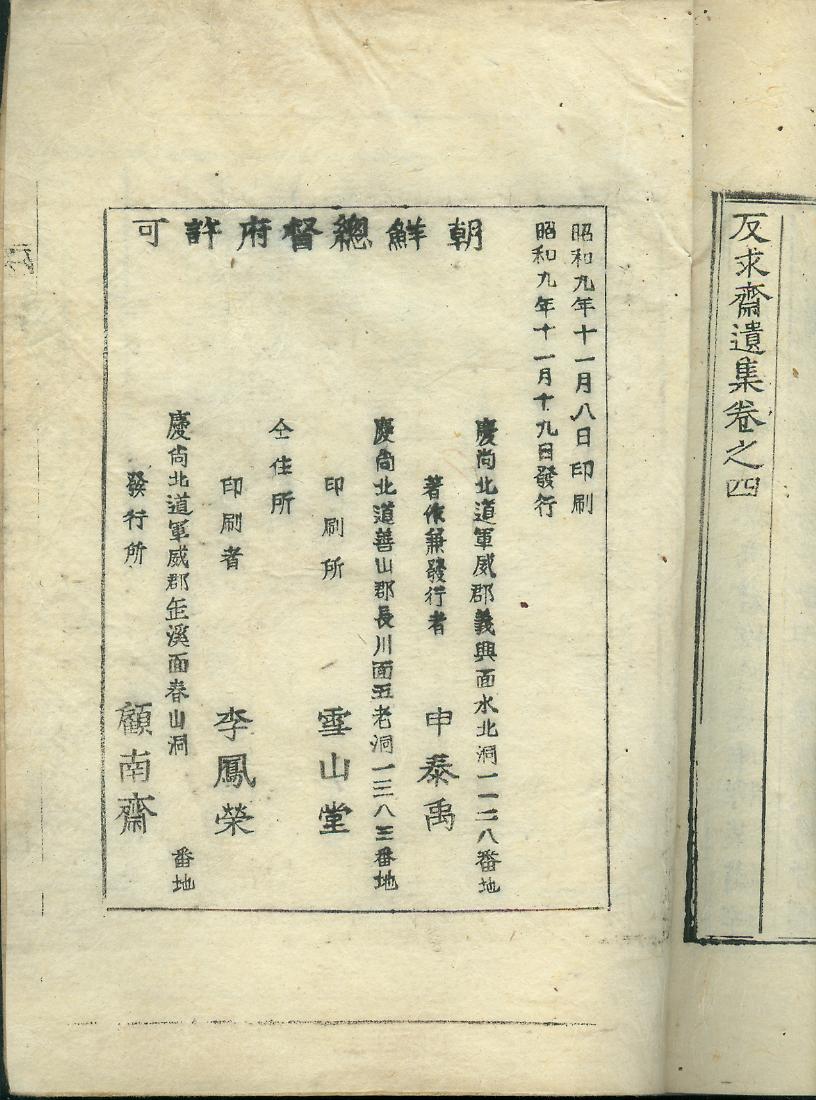 反求齋遺集卷之四
昭和九年十一月八日印刷
昭和九年十一月十九日發行
朝鮮總督府許可
慶尙北道軍威郡義興面水北洞一一二八番地
著作兼發行者 申泰禹
慶尙北道善山郡長川面五老洞一三八三番地
印刷所 雪山堂
仝住所
印刷者 李鳳榮
慶尙北道軍威郡缶溪面春山洞 番地
發行所 顧南齋